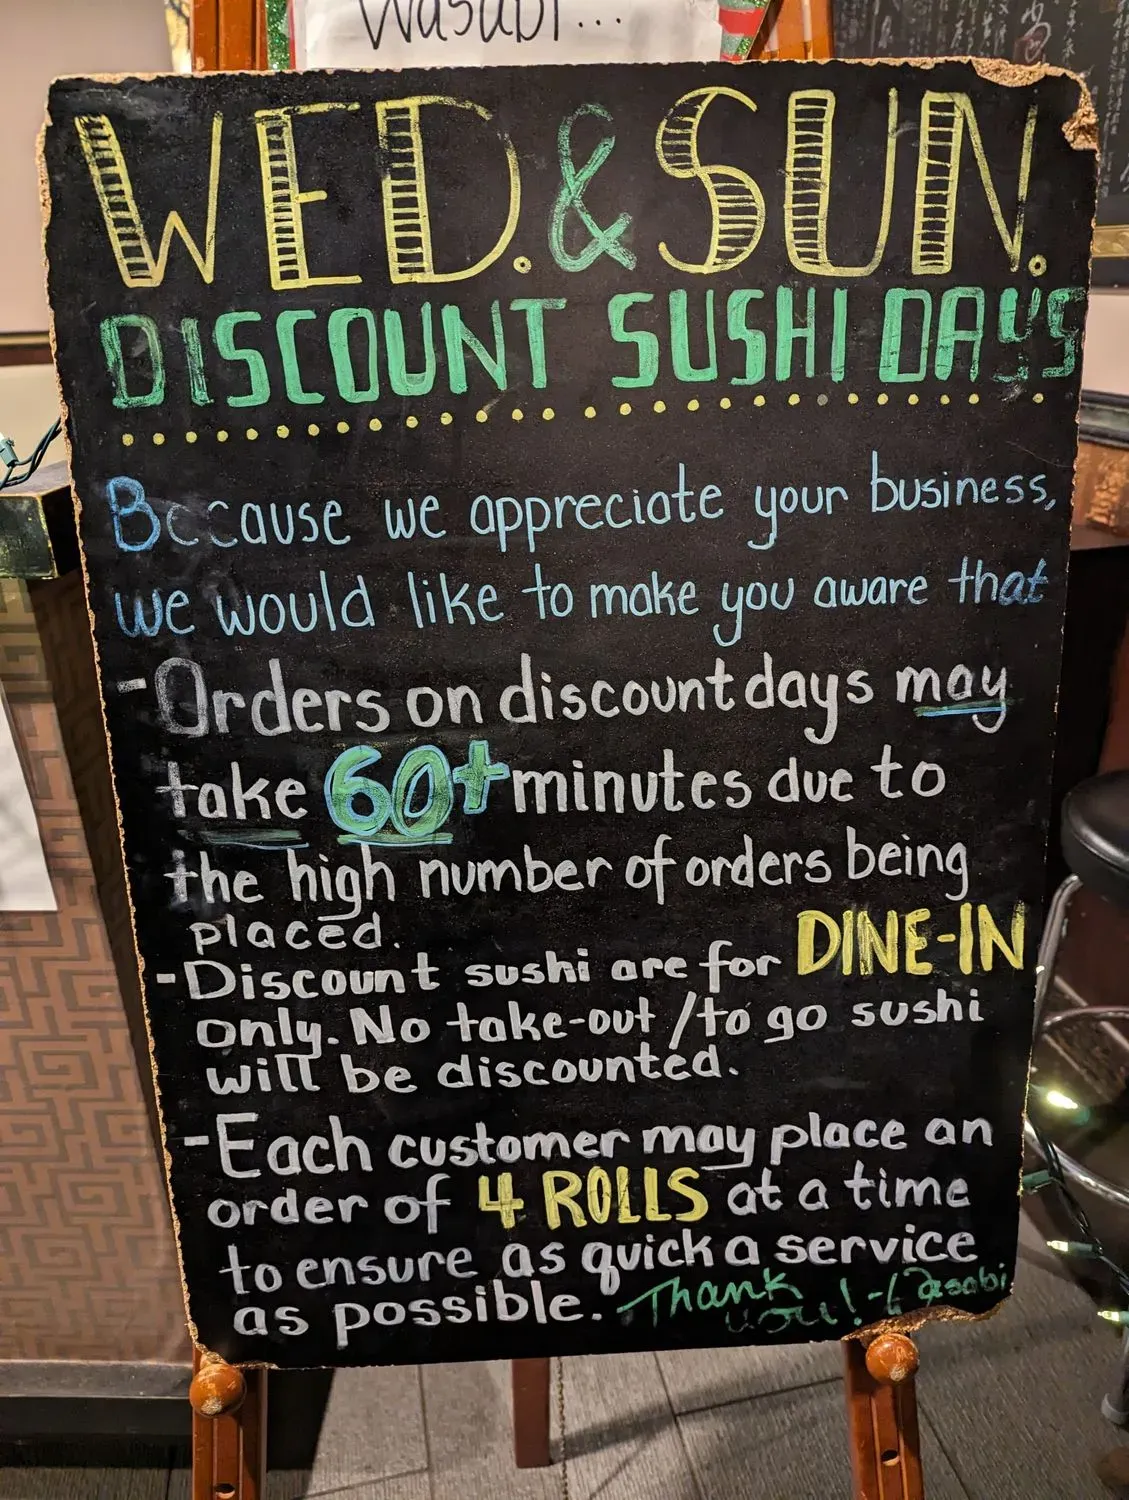 Wasabi...
WED. & SUN.
DISCOUNT SUSHI DAYS
Because we appreciate your business,
we would like to make you aware that
-Orders on discount days may
take 60+ minutes due to
the high number of orders being
placed.
-Discount sushi are for DINE-IN
only. No take-out/to go sushi
will be discounted.
-Each customer may place an
order of 4 ROLLS at a time
to ensure as quick a service
as possible. Thank
you! -Wasabi